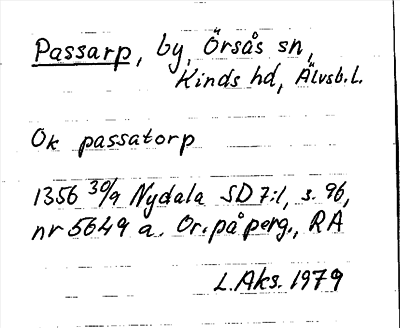 Passarp, by, Örsås sn,
Kinds hd, Älvsb.l.
Ok passatorp
1356 30/9 Nydala SD 7:1, s. 96,
nr 5649 a. Or. på perg., RA
L. Aks. 1979